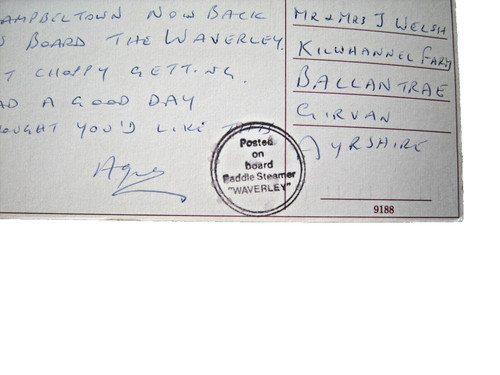 AMPBELTOWN NOW BACK
BOARD THE WAVERLEY.
T CHOPPY GETTING
AD A GOOD DAY
OUGHT YOU'D LIKE THIS
MR & MRS J WELSH
KILWHANNEL FARM
BALLANTRAE
GIRVAN
AYRSHIRE
Posted
on
board
Paddle Steamer
"WAVERLEY"
9188